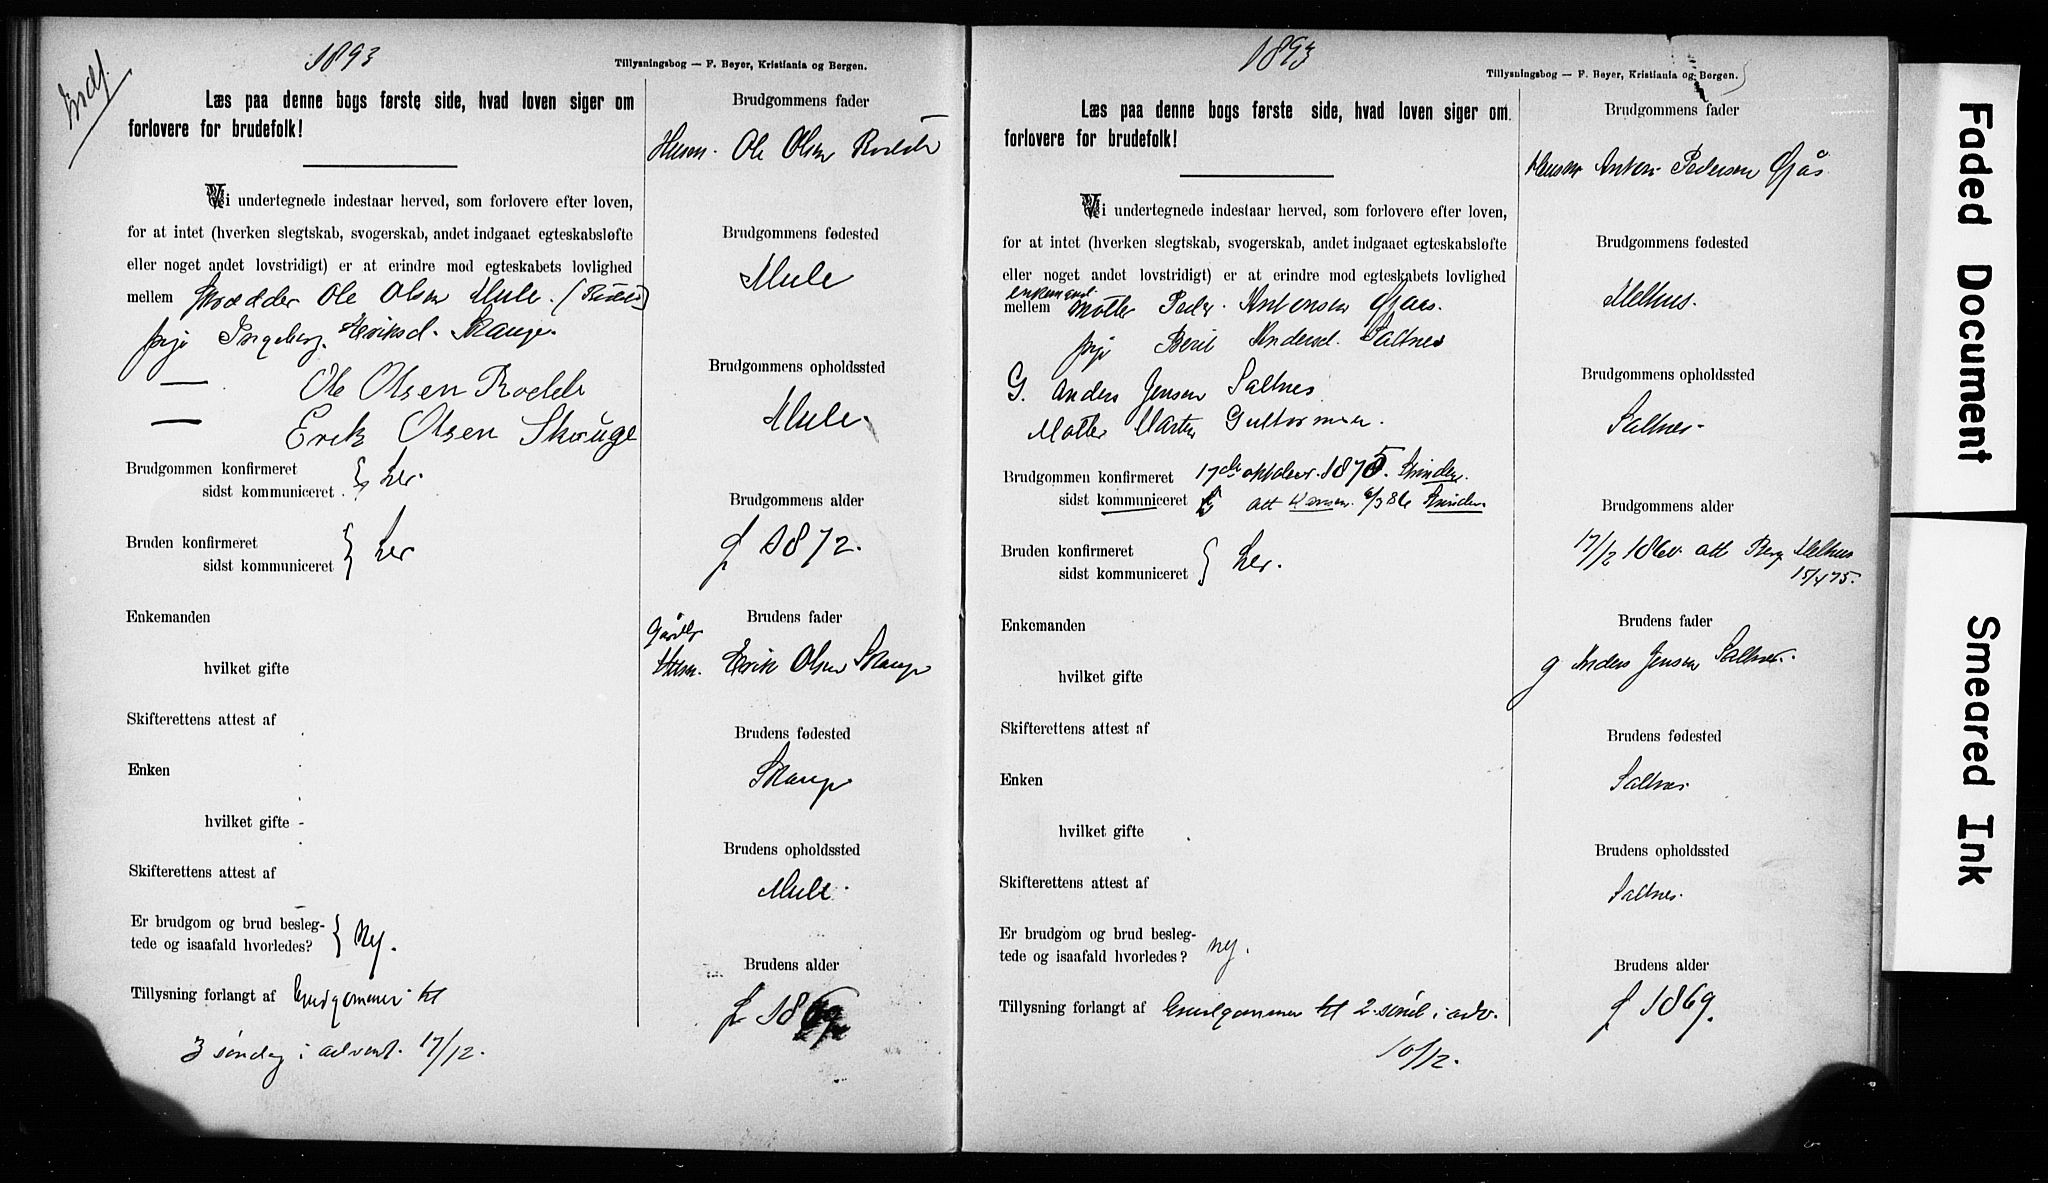 Indf.
1893
Tillysningsbog — F. Beyer, Kristiania og Bergen.
Læs paa denne bogs første side, hvad loven siger om
forlovere for brudefolk!
Vi undertegnede indestaar herved, som forlovere efter loven,
for at intet (hverken slegtskab, svogerskab, andet indgaaet egteskabsløfte
eller noget andet lovstridigt) er at erindre mod egteskabets lovlighed
mellem Skrædder Ole Olsen Mule.
pige Ingeborg Eriksd. Skauge.
— Ole Olsen Rodde
— Erik Olsen Skauge
Brudgommen konfirmeret
sidst kommuniceret } Ler.
Bruden konfirmeret
sidst kommuniceret } Ler
Enkemanden
hvilket gifte
Skifterettens attest af
Enken
hvilket gifte -
Skifterettens attest af
Er brudgom og brud besleg-
tede og isaafald hvorledes? } Nej.
Tillysning forlangt af Brudgommen til
3 søndag i advent. 17/12.
Brudgommens fader
Husm. Ole Olsen Rodde
Brudgommens fødested
Mule
Brudgommens opholdssted
Mule.
Brudgommens alder
f 1872.
Brudens fader
Gårdbr
Husm. Erik Olsen Skauge
Brudens fødested
Skauge
Brudens opholdssted
Mule.
Brudens alder
f 1869
1893
Tillysningsbog — F. Beyer, Kristiania og Bergen.
Læs paa denne bogs første side, hvad loven siger om
forlovere for brudefolk!
Vi undertegnede indestaar herved, som forlovere efter loven,
for at intet (hverken slegtskab, svogerskab, andet indgaaet egteskabsløfte
eller noget andet lovstridigt) er at erindre mod egteskabets lovlighed
enkemand.
mellem Møller Peder Antonsen Øfsås.
pige Berit Andersd. Saltnes
G. Anders Jensen Saltnes
Møller Martin Guttormsen.
Brudgommen konfirmeret 17de oktober 1875. Strinden.
sidst kommuniceret att 6/3 86 Strinden
Bruden konfirmeret
sidst kommuniceret } Ler.
Enkemanden
hvilket gifte
Skifterettens attest af
Enken
hvilket gifte
Skifterettens attest af
Er brudgom og brud besleg-
tede og isaafald hvorledes? nej.
Tillysning forlangt af Brudgommen til 2. sønd. i adv.
10/12.
Brudgommens fader
Husm Anton Pedersen Øfsås.
Brudgommens fødested
Melhus.
Brudgommens opholdssted
Saltnes.
Brudgommens alder
17/12 1860 att Berg Melhus
15/4 75.
Brudens fader
g Anders Jensen Saltnes.
Brudens fødested
Saltnes
Brudens opholdssted
Saltnes.
Brudens alder
f 1869.
Faded Document
Smeared Ink